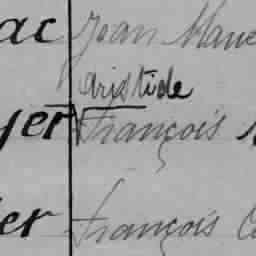 ac Jean Marie
aristide
yer François
ier François